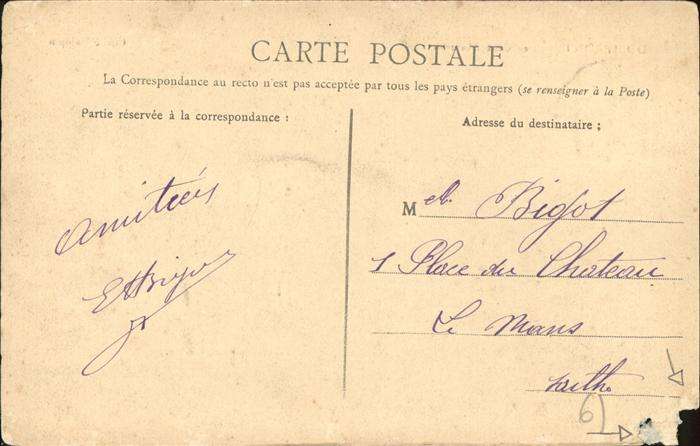 CARTE POSTALE
La Correspondance au recto n'est pas acceptée par tous les pays étrangers (se renseigner à la Poste)
Partie réservée à la correspondance :
Adresse du destinataire ;
Amitiés
M Bigot
1 Place du Chateau
Le Mans
Sarthe